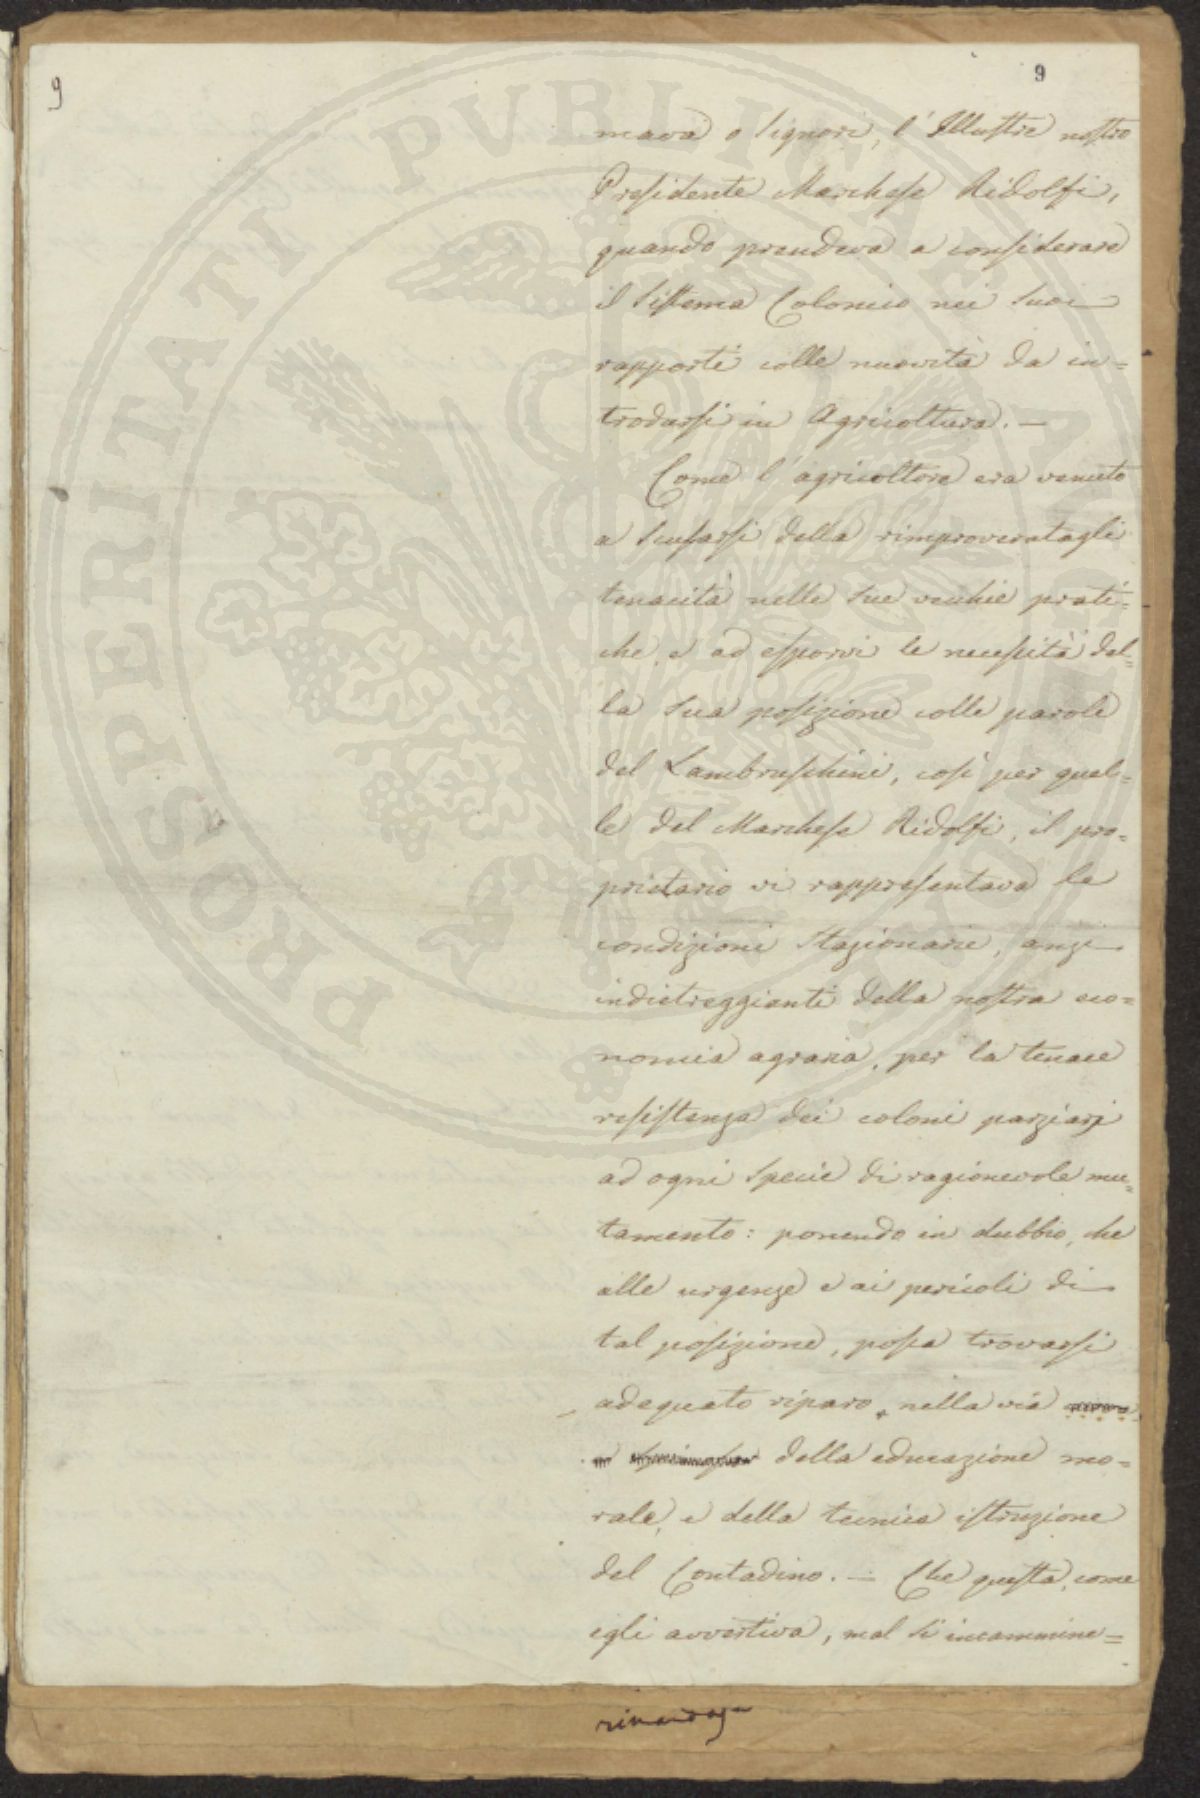 9
9
mava o Signori, l'Illustre nostro
Presidente Marchese Ridolfi,
quando prendeva a considerare
il Sistema Colonico nei suoi
rapporti colle nuovità da in=
trodursi in Agricoltura. —
Come l'agricoltore era venuto
a scusarsi della rimproveratagli
tenacità nelle sue vecchie prati=
che, e ad esporvi le necessità del=
la sua posizione colle parole
del Lambruschini, così per quel=
le del Marchese Ridolfi, il pro=
prietario vi rappresentava le
condizioni stazionarie, anzi
indietreggianti della nostra eco=
nomia agraria, per la tenace
resistenza dei coloni parziarj
ad ogni specie di ragionevole mu=
tamento: ponendo in dubbio, che
alle urgenze e ai pericoli di
tal posizione, possa trovarsi
adeguato riparo nella via
della educazione mo=
rale, e della tecnica istruzione
del Contadino. — Che questa, come
egli avvertiva, mal si incammine=
PROSPERITATI PVBLICAE AVGENDAE